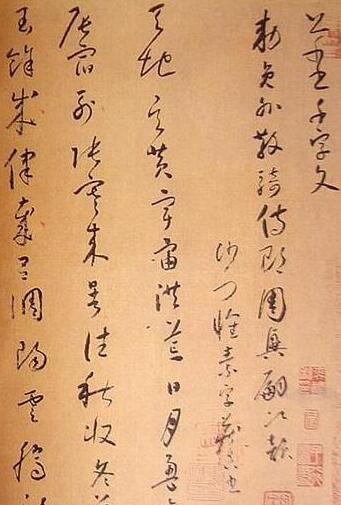 千字文
敕員外散騎侍郎周興嗣次韻
沙門懷素字藏真書
天地玄黃宇宙洪荒日月盈
辰宿列張寒來暑往秋收冬藏
閏餘成律歲呂調陽雲騰